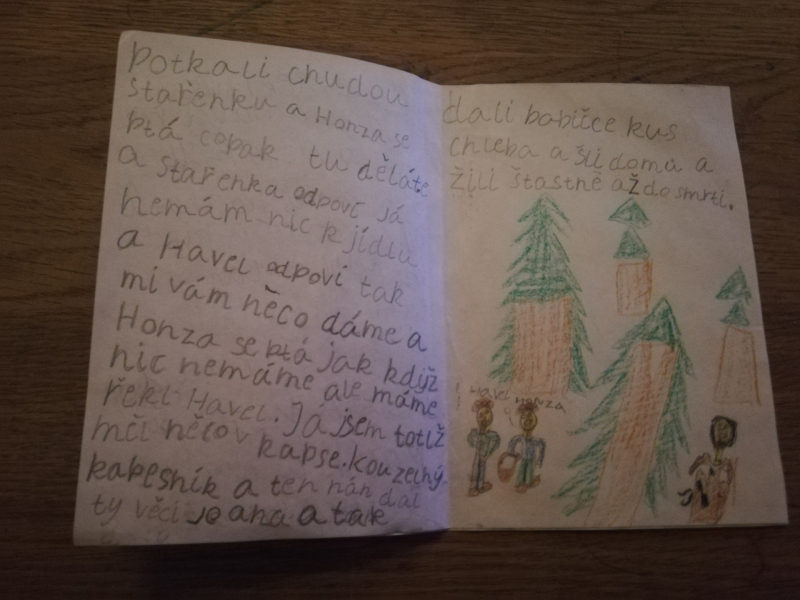 potkali chudou
stařenku a Honza se
ptá copak tu děláte
a stařenka odpoví já
nemám nic k jídlu
a Havel odpoví tak
mi vám něco dáme a
Honza se ptá jak když
nic nemáme ale máme
řekl Havel. Já jsem totiž
měl něco v kapse. kouzelný
kapesník a ten nán dal
ty věci jo ana a tak
dali babičce kus
chleba a šli domu a
žili štastně až do smrti.
Havel Honza